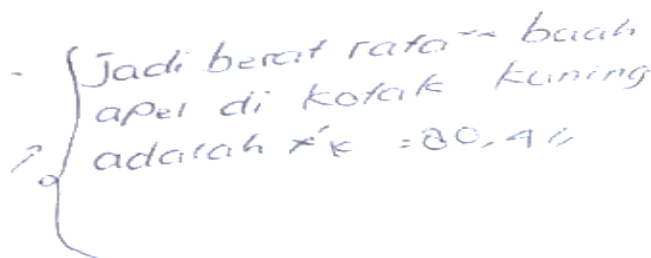 Jadi berat rata" buah
apel di kotak kuning
adalah x̄K = 80,4 //